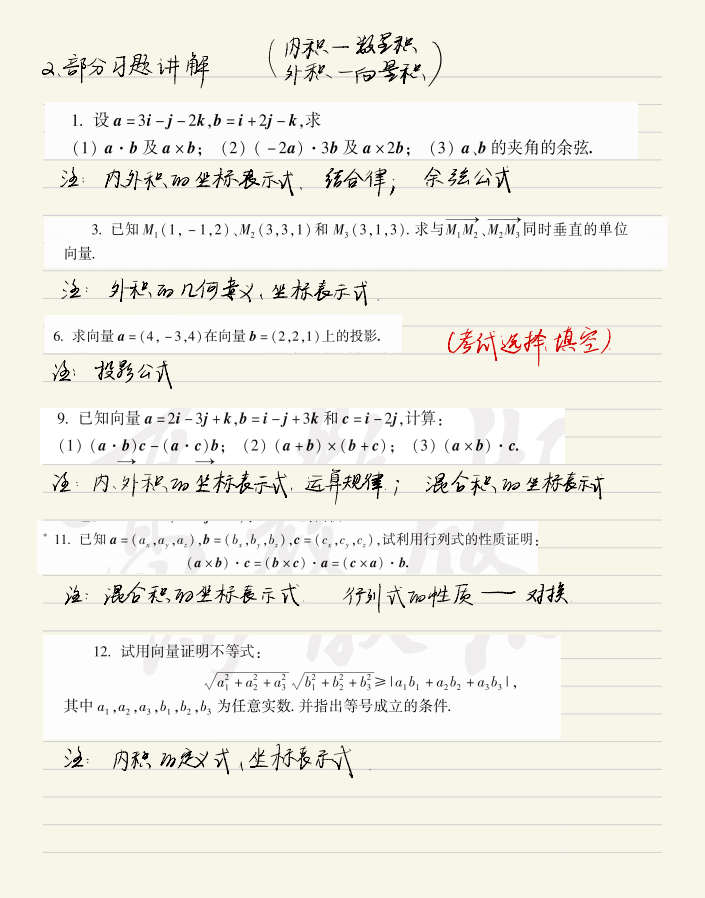 2. 部分习题讲解
(内积—数量积
外积—向量积)
1. 设 a=3i-j-2k,b=i+2j-k,求
(1) a·b 及 a×b; (2) (-2a)·3b 及 a×2b; (3) a、b 的夹角的余弦.
注: 内外积的坐标表示式、结合律; 余弦公式
3. 已知 M₁(1,-1,2)、M₂(3,3,1)和 M₃(3,1,3).求与M₁M₂、M₂M₃同时垂直的单位
向量.
注: 外积的几何意义、坐标表示式.
6. 求向量 a=(4,-3,4)在向量 b=(2,2,1)上的投影.
(考试选择、填空)
注: 投影公式
9. 已知向量 a=2i-3j+k,b=i-j+3k 和 c=i-2j,计算:
(1) (a·b)c-(a·c)b; (2) (a+b)×(b+c); (3) (a×b)·c.
注: 内、外积的坐标表示式、运算规律; 混合积的坐标表示式
*11. 已知 a=(aₓ,a_y,a_z),b=(bₓ,b_y,b_z),c=(cₓ,c_y,c_z),试利用行列式的性质证明:
(a×b)·c=(b×c)·a=(c×a)·b.
注: 混合积的坐标表示式 行列式的性质 — 对换
12. 试用向量证明不等式:
√(a₁²+a₂²+a₃²) √(b₁²+b₂²+b₃²)≥|a₁b₁+a₂b₂+a₃b₃|,
其中 a₁,a₂,a₃,b₁,b₂,b₃ 为任意实数.并指出等号成立的条件.
注: 内积的定义式、坐标表示式.